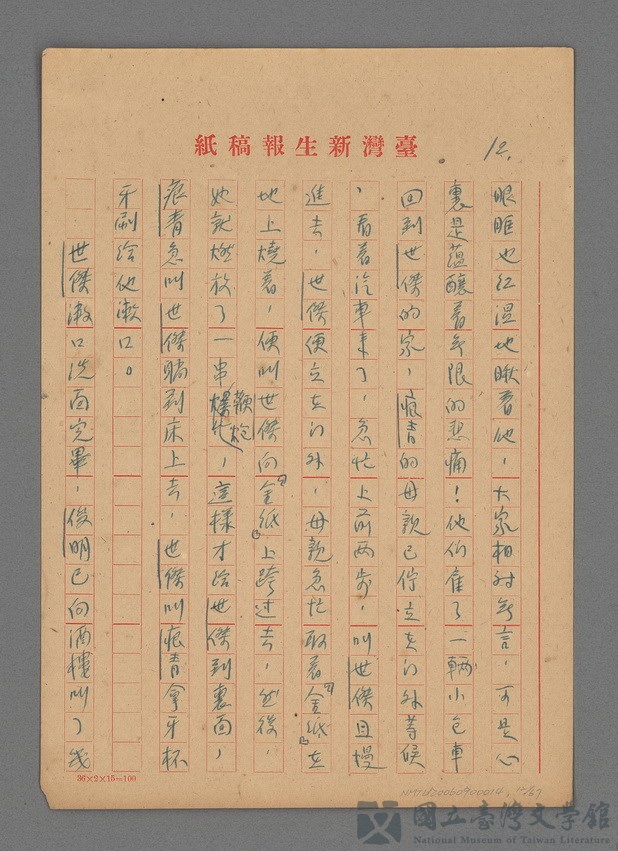 臺灣新生報稿紙
12.
眼眶也紅濕地瞅着他，大家相对無言，可是心
裏是蘊釀着無限的悲痛！他们雇了一輛小包車
回到世傑的家，痕青的母親已佇立在门外等候
，看着汽車来了，急忙上前两步，叫世傑且慢
進去，世傑便立在门外，母親急忙取着「金纸」在
地上燒着，便叫世傑向「金纸」上跨过去，然後，
她就燃放了一串鞭炮，這樣才给世傑到裏面，
痕青急叫世傑躺到床上去，世傑叫痕青拿牙杯
牙刷给他漱口。
世傑漱口洗面完畢，俊明已向酒樓叫了幾
36×2×15—100
NMTL20060900014
國立臺灣文学館
National Museum of Taiwan Literature